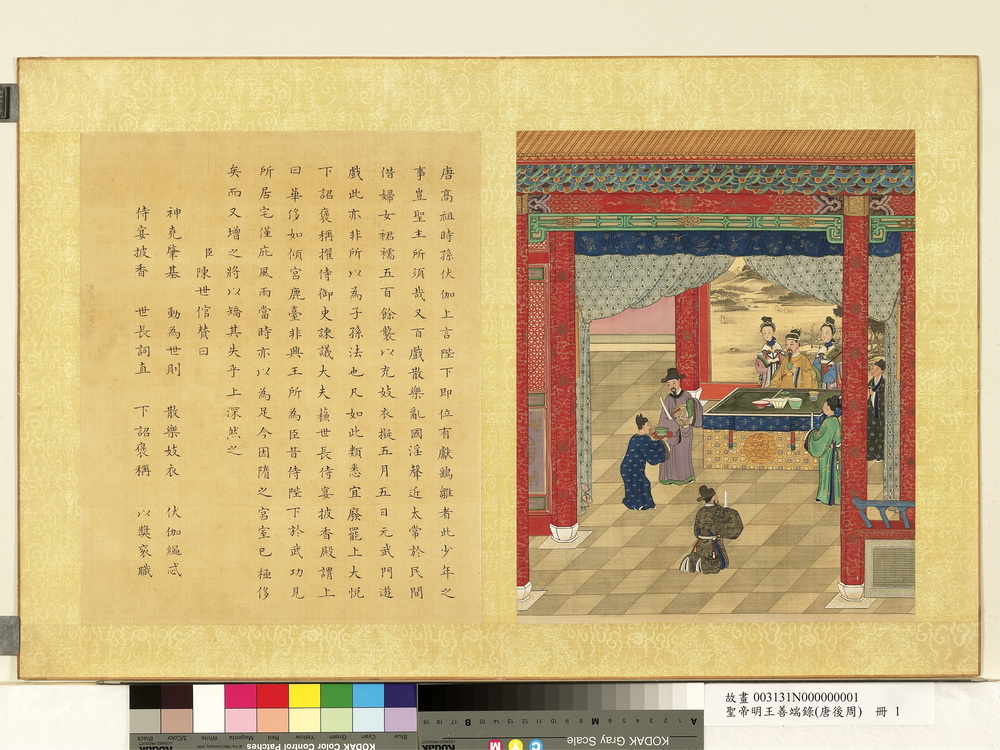 唐高祖時孫伏伽上言陛下即位有獻鷂雛者此少年之
事豈聖主所須哉又百戲散樂亂國淫聲近太常於民間
借婦女裙襦五百餘襲以充妓衣擬五月五日元武門遊
戲此亦非所以為子孫法也凡如此類悉宜廢罷上大悅
下詔褒稱擢侍御史諫議大夫蘓世長侍宴披香殿謂上
曰華侈如傾宮鹿臺非興王所為臣昔侍陛下於武功見
所居宅僅庇風雨當時亦以為足今因隋之宮室已極侈
矣而又增之將以矯其失乎上深然之
臣陳世倌贊曰
神堯肇基 動為世則 散樂妓衣 伏伽繩忒
侍宴披香 世長詞直 下詔褒稱 以獎家職
故畫 003131N000000001
聖帝明王善端錄(唐後周) 冊 1
KODAK Gray Scale
KODAK Color Control Patches
Blue Cyan Green Yellow Red Magenta White 3/Color Black
A 1 2 3 4 5 6 M 8 9 10 11 12 13 14 15 B 17 18 19
C Y M
Kodak